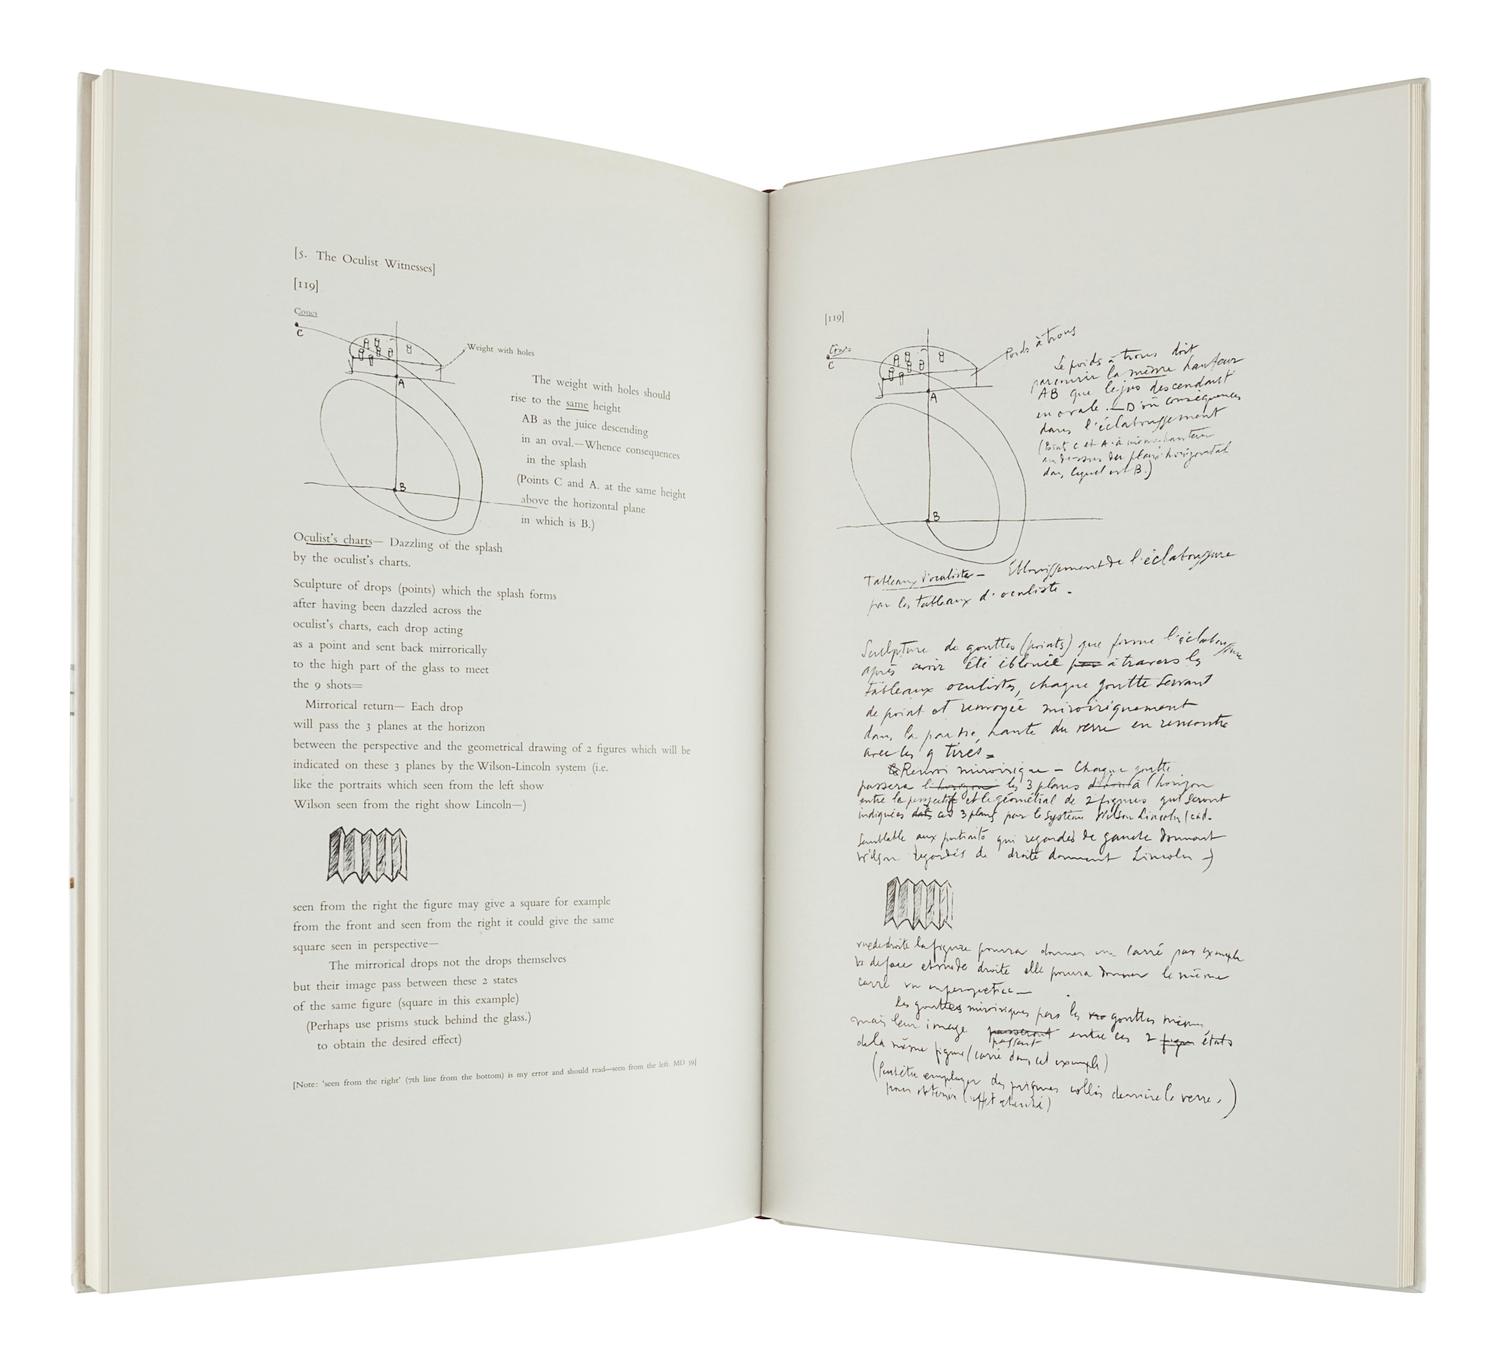 [5. The Oculist Witnesses]
[119]
C
Weight with holes
A
B
The weight with holes should
rise to the same height
AB as the juice descending
in an oval.—Whence consequences
in the splash
(Points C and A. at the same height
above the horizontal plane
in which is B.)
Oculist's charts— Dazzling of the splash
by the oculist's charts.
Sculpture of drops (points) which the splash forms
after having been dazzled across the
oculist's charts, each drop acting
as a point and sent back mirrorically
to the high part of the glass to meet
the 9 shots=
Mirrorical return— Each drop
will pass the 3 planes at the horizon
between the perspective and the geometrical drawing of 2 figures which will be
indicated on these 3 planes by the Wilson-Lincoln system (i.e.
like the portraits which seen from the left show
Wilson seen from the right show Lincoln—)
seen from the right the figure may give a square for example
from the front and seen from the right it could give the same
square seen in perspective—
The mirrorical drops not the drops themselves
but their image pass between these 2 states
of the same figure (square in this example)
(Perhaps use prisms stuck behind the glass.)
to obtain the desired effect)
[Note: 'seen from the right' (7th line from the bottom) is my error and should read—seen from the left. MD 59]
[119]
C
Poids à trous
A
B
Le poids à trous doit
parcourir la même hauteur
AB que le jus descendant
en ovale. —D'où conséquences
dans l'éclaboussement
(Points C et A à même hauteur
au dessus du plan horizontal
dans lequel est B.)
Tableaux d'oculiste— Eblouissement de l'éclaboussure
par les tableaux d'oculiste.
Sculpture de gouttes (points) que forme l'éclaboussure
après avoir été éblouie par à travers les
tableaux oculistes, chaque goutte servant
de point et renvoyée miroiriquement
dans la partie haute du verre en rencontre
avec les 9 tirés=
Renvoi miroirique — Chaque goutte
passera l'horizon les 3 plans à l'horizon
entre le perspectif et le géométral de 2 figures qui seront
indiquées dans ces 3 plans par le système Wilson Lincoln (càd.
semblable aux portraits qui regardés de gauche donnent
Wilson regardés de droite donnent Lincoln —)
vue de droite la figure pourra donner un carré par exemple
de face et vue de droite elle pourra donner le même
carré vu en perspective—
Les gouttes miroiriques pas les gouttes mêmes
mais leur image passeront passent entre ces 2 figur états
de la même figure (carré dans cet exemple)
(Peut être employer des prismes collés derrière le verre.)
pour obtenir l'effet cherché)